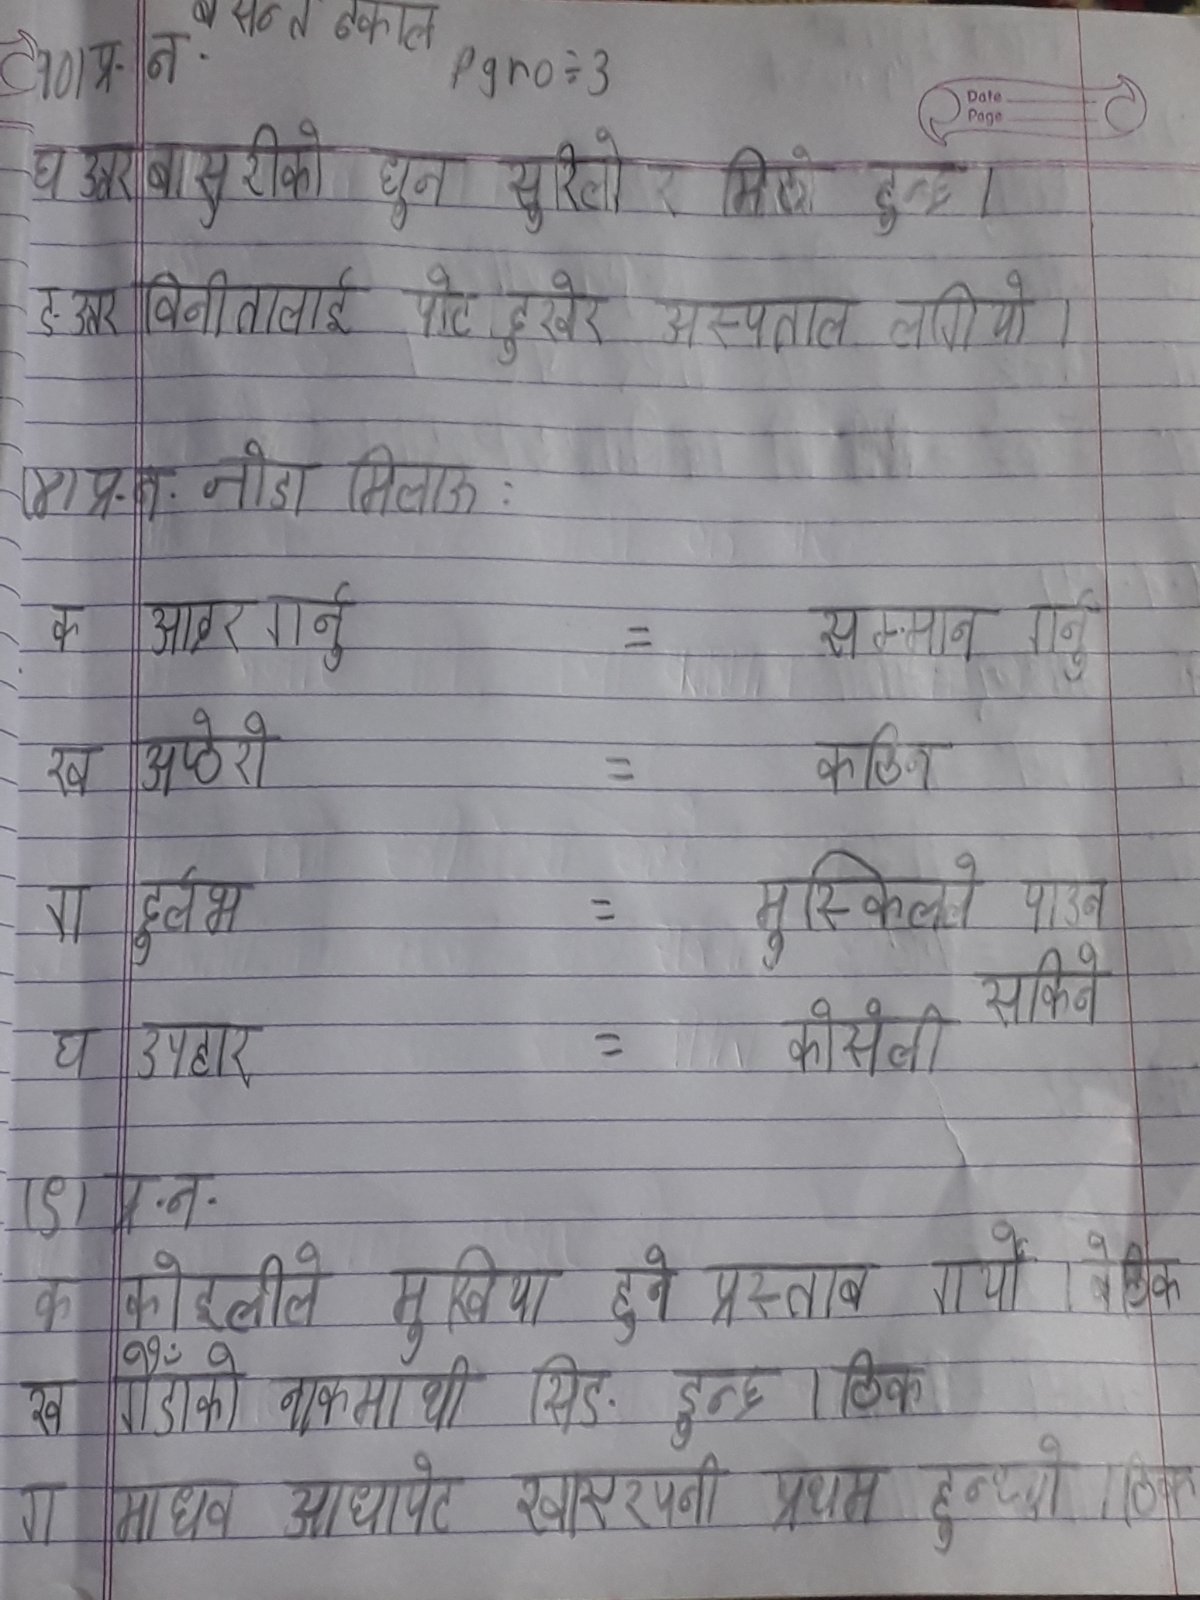 बसन्त ढकाल
१०।प्र. न. Pg no ÷ 3
Date
Page
घ उत्तर बासुरीको धुन सुरिलो र मिठो हुन्छ ।
ङ उत्तर विनीतालाई पेट दुखेर अस्पताल लगियो ।
(४) प्र. न. जोडा मिलाऊ :
क आदर गर्नु = सम्मान गर्नु
ख अप्ठेरो = कठिन
ग दुर्लभ = मुस्किलले पाउन
सकिने
घ उपहार = कोसेली
(९) प्र.न.
क कोइलीले मुखिया हुने प्रस्ताब गर्यो । बेठिक
ख गैंडाको नाकमाथी सिङ. हुन्छ । ठिक
ग माधव आधापेट खाएरपनी प्रथम हुन्थ्यो । ठिक